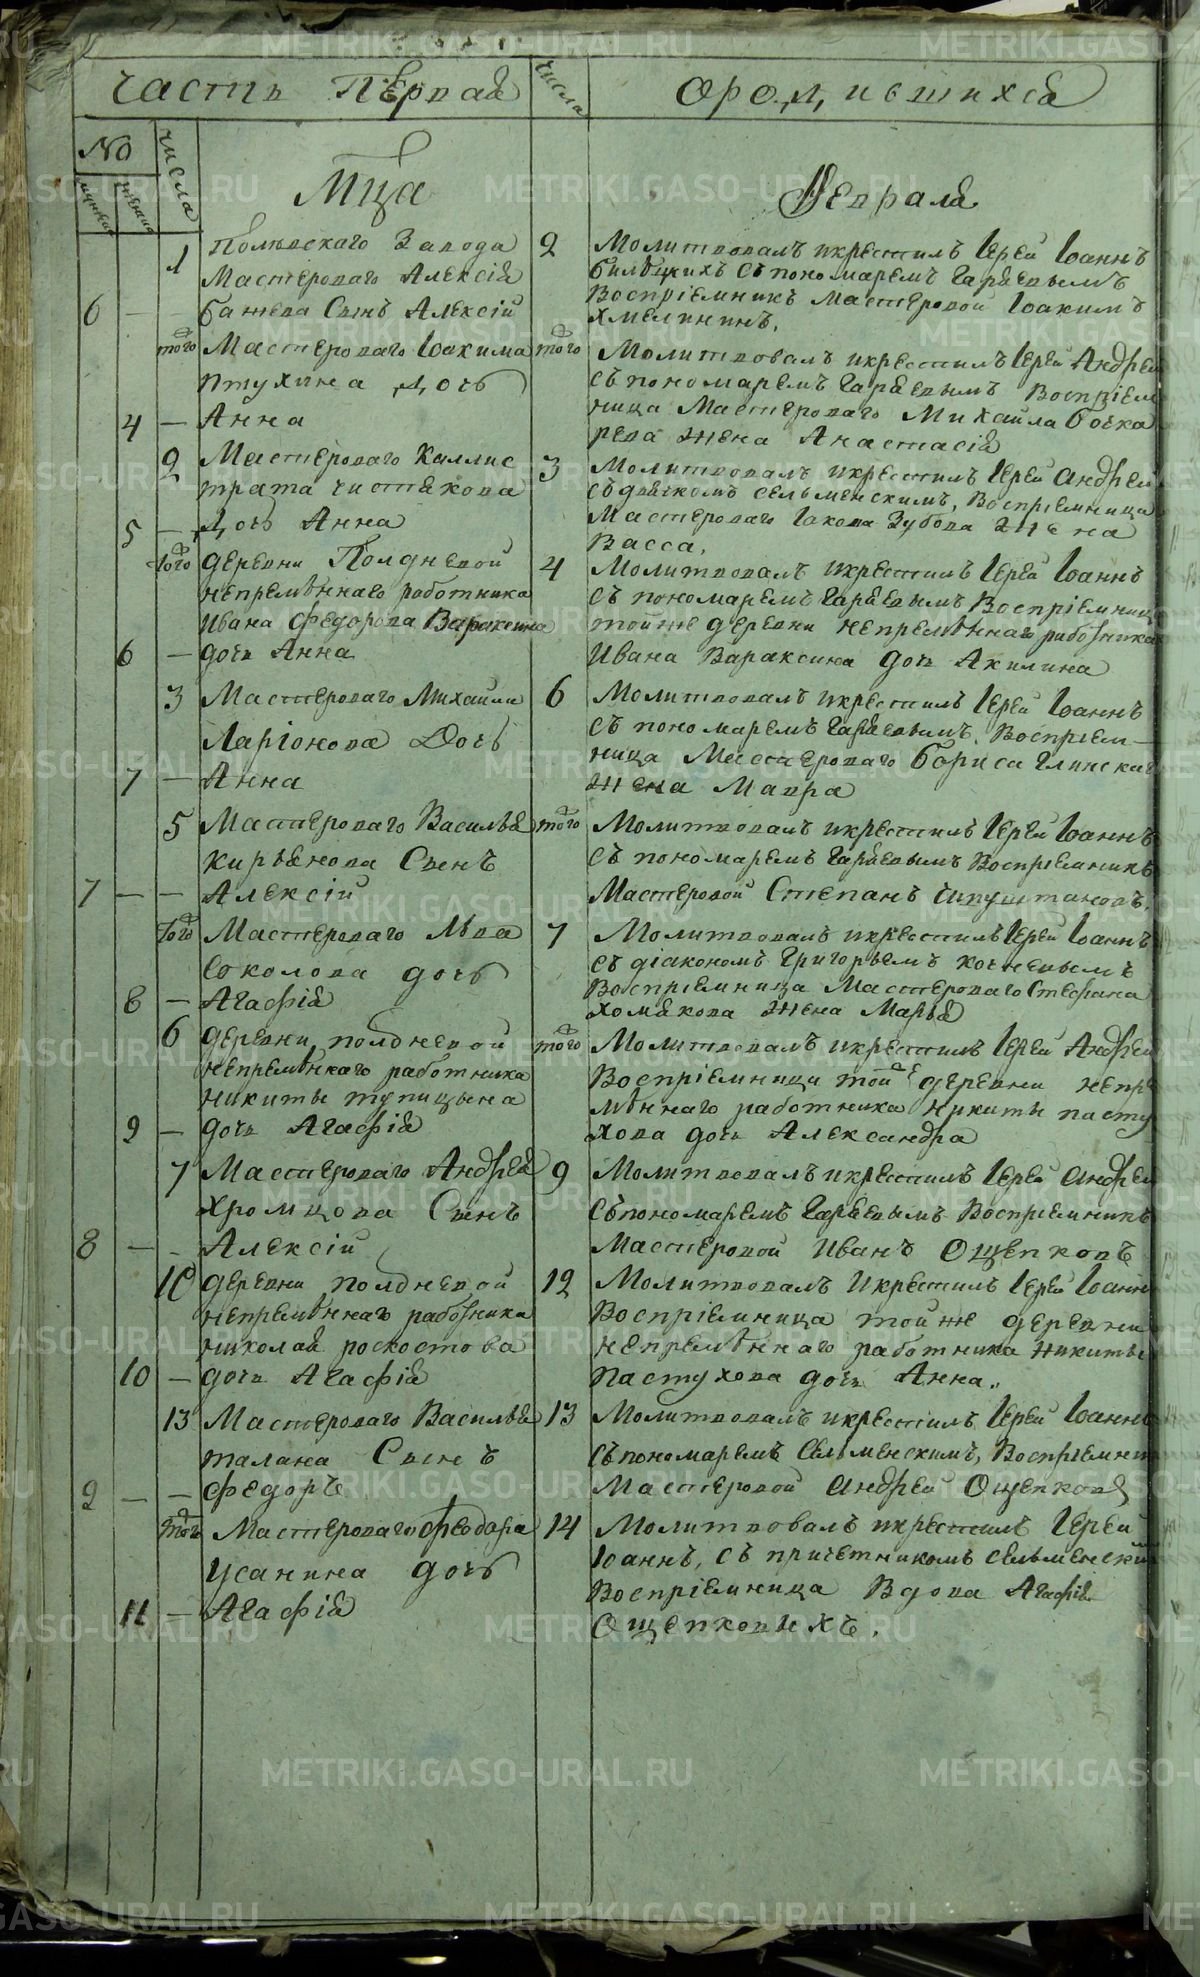 Часть Первая
числа
о родившихся
№
мужеска
женска
числа
Мца
Февраля
1
Полевскаго Завода
Мастероваго Алексѣя
6 —
Бажева Сынъ Алексій
2
Молитвовалъ и крестилъ Іерей Іоаннъ
съ пономаремъ Гаряевымъ
Воспріемникъ Мастеровой Іоакимъ
Хмелининъ.
того
Мастероваго Іоакима
Птухина Дочь
4 —
Анна
того
Молитвовалъ и крестилъ Іерей Андрей
съ пономаремъ Гаряевымъ Воспріем
ница Мастероваго Михаила Бочка
рева жена Анастасія
2
Мастероваго Каллис
трата Чистякова
5 —
Дочь Анна
3
Молитвовалъ и крестилъ Іерей Андрей
съ дьячкомъ Сельменскимъ, Воспріемница
Мастероваго Іакова Зубова жена
Васса,
того
деревни Полдневой
непремѣннаго работника
Ивана Федорова Вараксина
6 —
дочь Анна
4
Молитвовалъ и крестилъ Іерей Іоаннъ
съ пономаремъ Гаряевымъ Воспріемниц
тойже деревни непремѣннаго работника
Ивана Вараксина дочь Акилина
3
Мастероваго Михаила
Ларіонова Дочь
7 —
Анна
6
Молитвовалъ и крестилъ Іерей Іоаннъ
съ пономаремъ Гаряевымъ, Воспріем—
ница Мастероваго Бориса Глинска
жена Мавра
5
Мастероваго Василья
Кирьянова Сынъ
7 — —
Алексій
того
Молитвовалъ и крестилъ Іерей Іоаннъ
съ пономаремъ Гаряевымъ Воспріемникъ
Мастеровой Степанъ Чипуштановъ.
того
Мастероваго Льва
Соколова дочь
8 —
Агафія
7
Молитвовалъ и крестилъ Іерей Іоаннъ
съ діакономъ Григорьемъ Кочневымъ
Воспріемница Мастероваго Стефана
Хомякова жена Марья
6
деревни полдневой
непремѣннаго работника
Никиты Тупицына
9 —
дочь Агафія
того
Молитвовалъ и крестилъ Іерей Андрей
Воспріемница той же деревни непре
мѣннаго работника Никиты Пасту
хова дочь Александра
7
Мастероваго Андрея
Хромцова Сынъ
8 — —
Алексій
9
Молитвовалъ и крестилъ Іерей Андрей
съ пономаремъ Гаряевымъ Воспріемникъ
Мастеровой Иванъ Ощепковъ
10
деревни полдневой
непремѣннаго работника
Николая Роскостова
10 —
дочь Агафія
12
Молитвовалъ и крестилъ Іерей Іоанн
Воспріемница тойже деревни
непремѣннаго работника Никиты
Пастухова дочь Анна.
13
Мастероваго Василья
Талана Сынъ
9 — —
Федоръ
13
Молитвовалъ и крестилъ Іерей Іоаннъ
съ пономаремъ Сельменскимъ, Воспріемни
Мастеровой Андрей Ощепковъ
того
Мастероваго Феодора
Усанина дочь
11 —
Агафія
14
Молитвовалъ и крестилъ Іерей
Іоаннъ, съ причетникомъ Сельменским
Воспріемница Вдова Агафія
Ощепковыхъ.